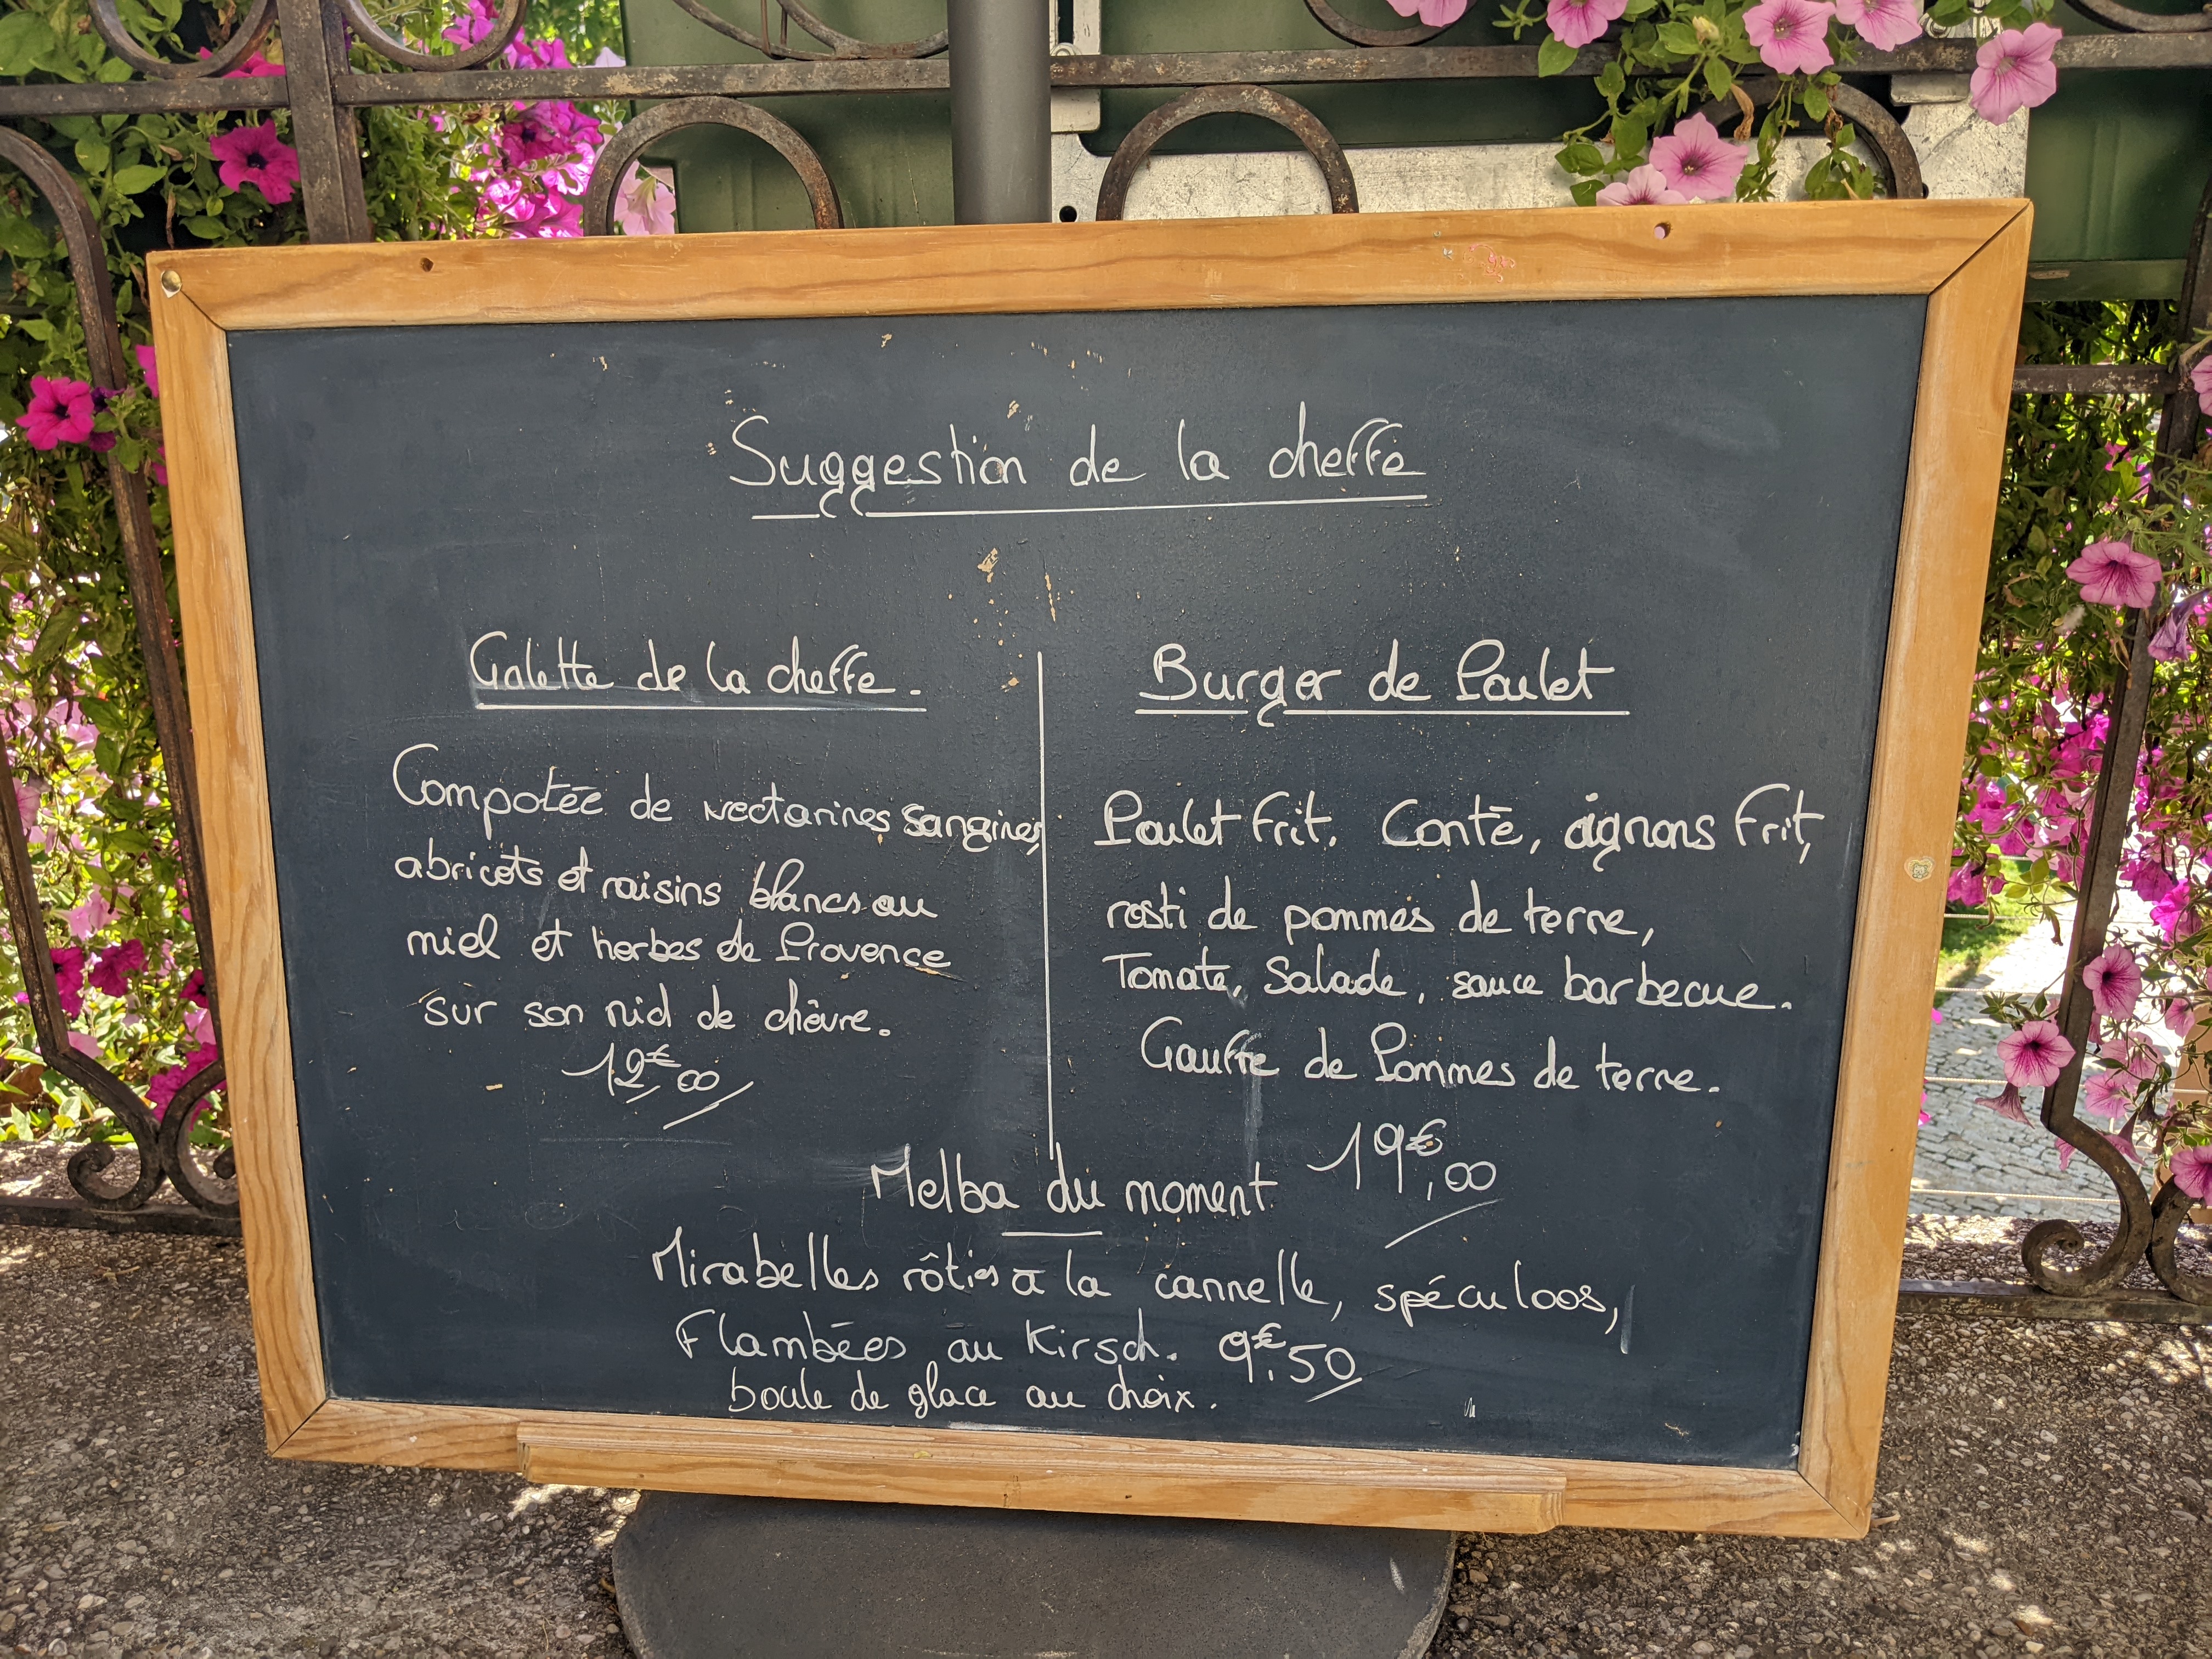 Suggestion de la cheffe
Galette de la cheffe.
Compotée de nectarines sanguines,
abricots et raisins blancs au
miel et herbes de Provence
sur son nid de chèvre.
12€,00
Burger de Poulet
Poulet frit. Comté, oignons frit,
rosti de pommes de terre,
Tomate, Salade, sauce barbecue.
Gauffe de Pommes de terre.
19€,00
Melba du moment
Mirabelles rôties à la cannelle, spéculoos,
Flambées au Kirsch. 9€,50
boule de glace au choix.